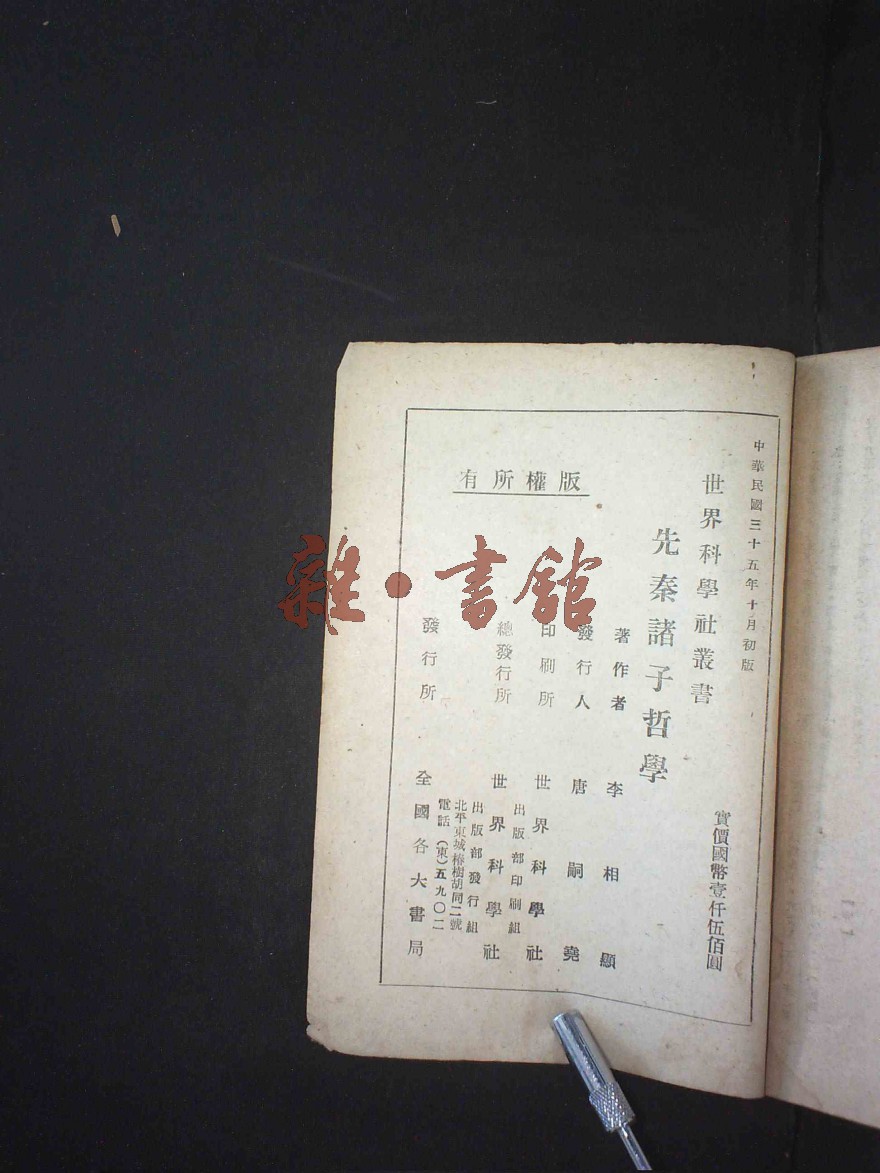 中華民國三十五年十月初版
世界科學社叢書
實價國幣壹仟伍佰圓
先秦諸子哲學
著作者 李相顯
發行人 唐嗣堯
印刷所 世界科學社
出版部印刷組
總發行所 世界科學社
出版部發行組
北平東城椿樹胡同二號
電話(東)五九〇二
發行所 全國各大書局
版權所有
雜·書館